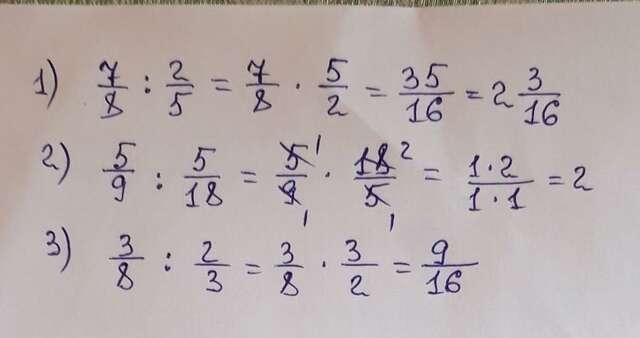 1) 7/8 : 2/5 = 7/8 · 5/2 = 35/16 = 2 3/16
2) 5/9 : 5/18 = 5¹/9₁ · 18²/5₁ = 1·2/1·1 = 2
3) 3/8 : 2/3 = 3/8 · 3/2 = 9/16